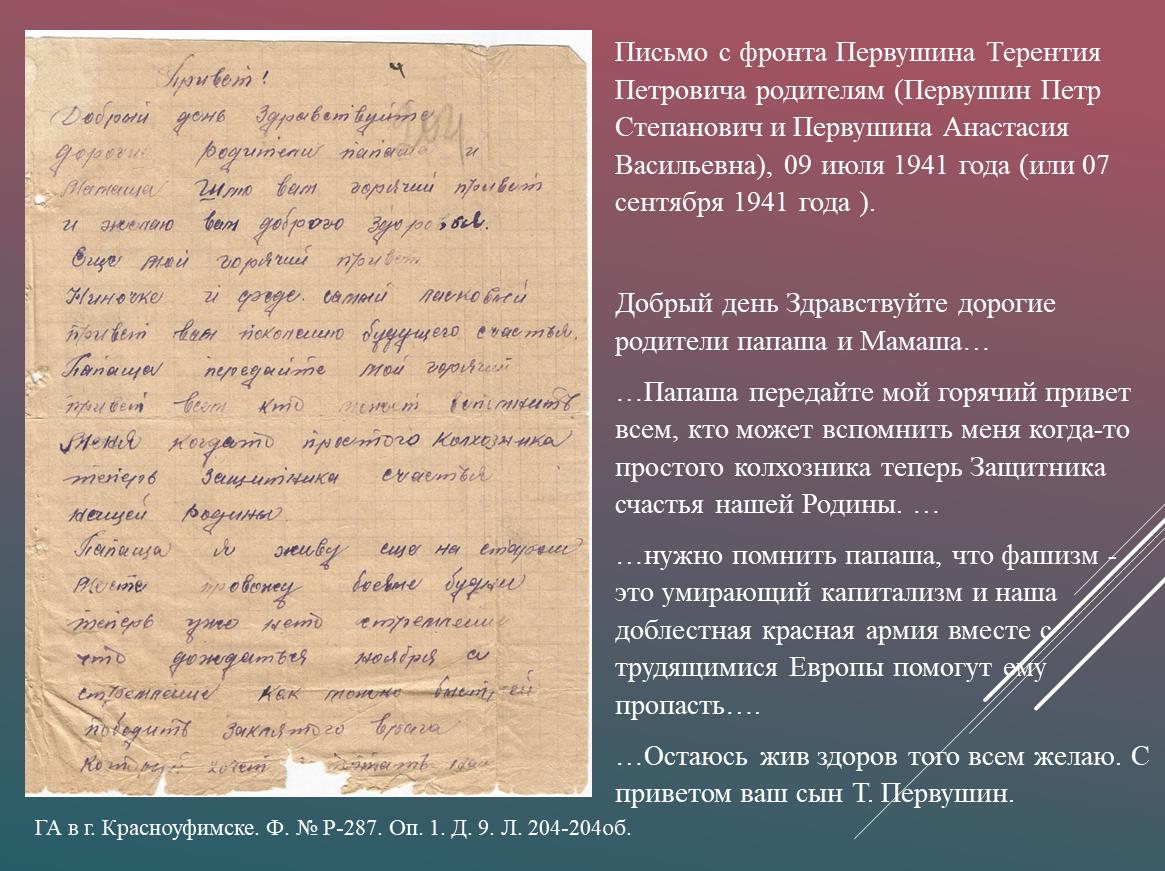 Привет!
Добрый день Здравствуйте
дорогие родители папаша и
Мамаша Шлю вам горячий привет
и желаю вам доброго здоровья.
Еще мой горячий привет
Ниночке и самый ласковый
привет вам поколению будущего счастья.
Папаша передайте мой горячий
привет всем кто может вспомнить
меня когдато простого колхозника
теперь Защитника счастья
нашей Родины.
Папаша я живу еще на старом
месте провожу боевые будни
теперь уже нето стремление
что дождаться ноября а
стремление как можно быстрей
победить заклятого врага
Который хочет
Письмо с фронта Первушина Терентия
Петровича родителям (Первушин Петр
Степанович и Первушина Анастасия
Васильевна), 09 июля 1941 года (или 07
сентября 1941 года ).
Добрый день Здравствуйте дорогие
родители папаша и Мамаша…
…Папаша передайте мой горячий привет
всем, кто может вспомнить меня когда-то
простого колхозника теперь Защитника
счастья нашей Родины. …
…нужно помнить папаша, что фашизм -
это умирающий капитализм и наша
доблестная красная армия вместе с
трудящимися Европы помогут ему
пропасть….
…Остаюсь жив здоров того всем желаю. С
приветом ваш сын Т. Первушин.
ГА в г. Красноуфимске. Ф. № Р-287. Оп. 1. Д. 9. Л. 204-204об.